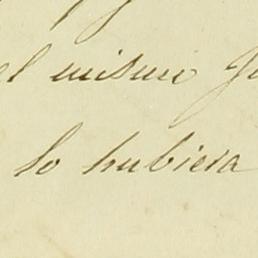 el mismo
lo hubiera